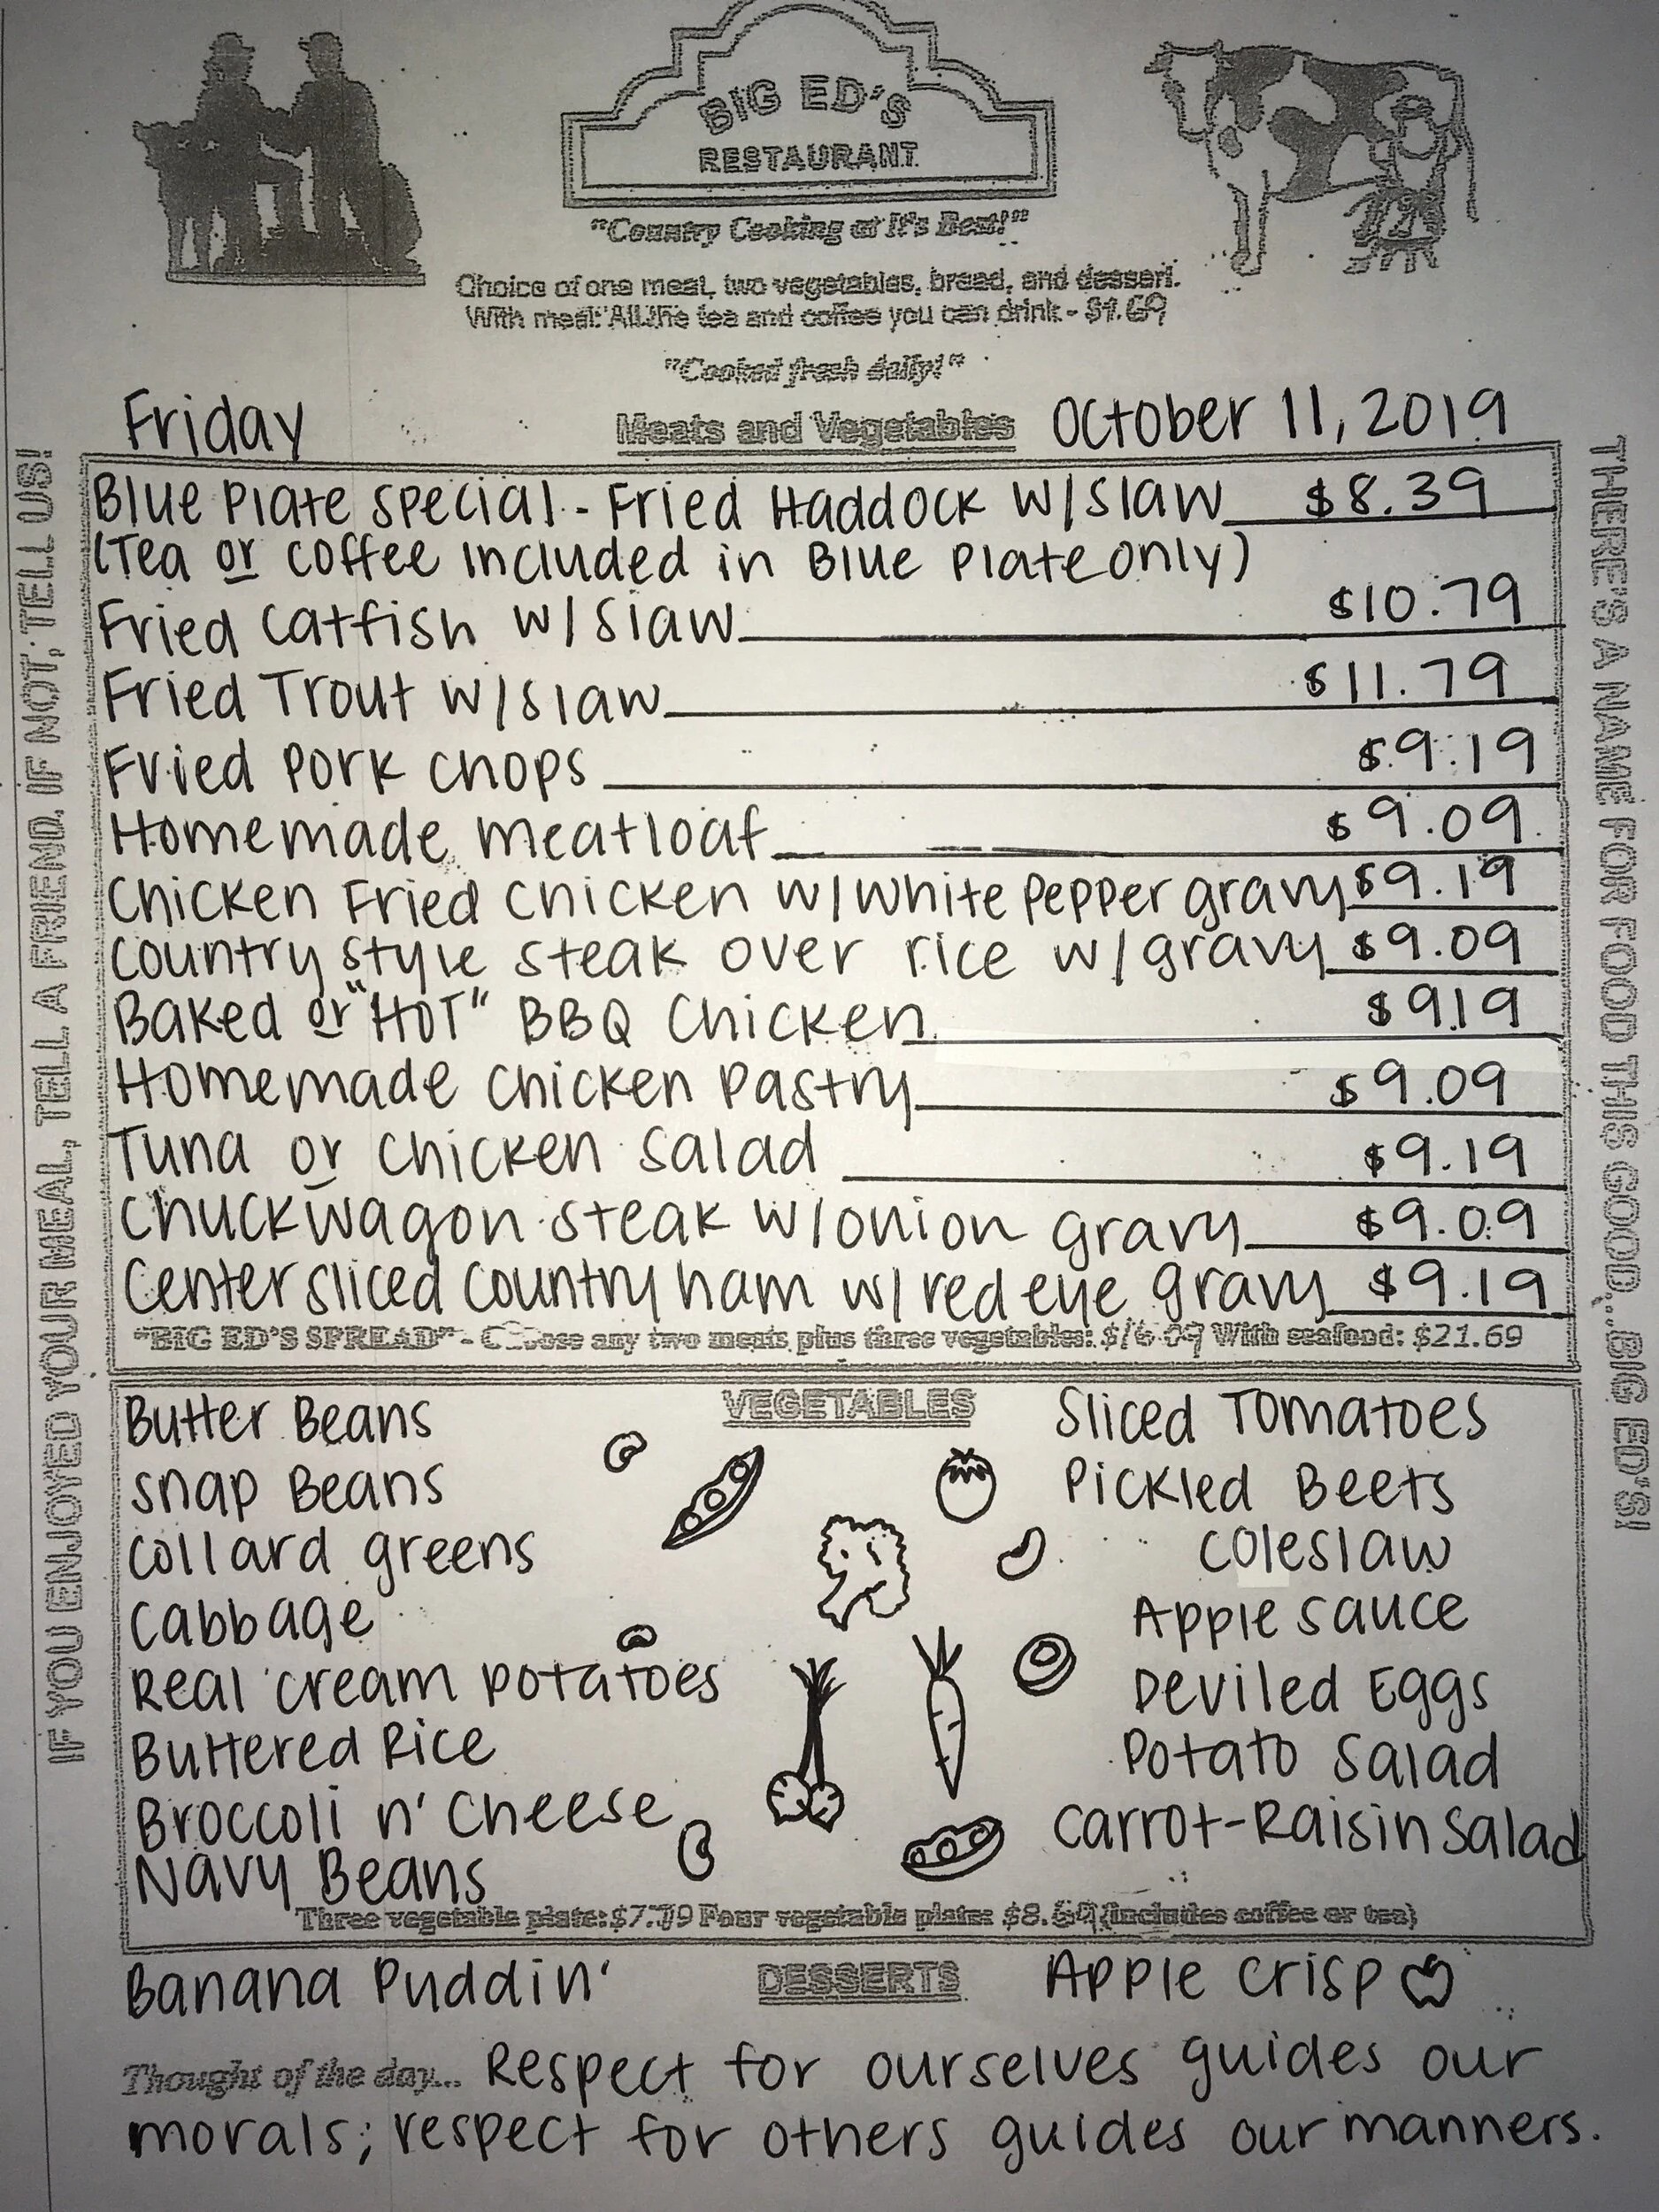 BIG ED'S
RESTAURANT
"Country Cooking at It's Best!"
Choice of one meat, two vegetables, bread, and dessert.
With meal: All the tea and coffee you can drink - $1.69
"Cooked fresh daily!"
Friday Meats and Vegetables October 11, 2019
Blue Plate Special - Fried Haddock w/slaw $8.39
(Tea or coffee included in Blue Plate only)
Fried Catfish w/slaw $10.79
Fried Trout w/slaw $11.79
Fried Pork Chops $9.19
Homemade Meatloaf $9.09
Chicken Fried Chicken w/white pepper gravy $9.19
Country style steak over rice w/gravy $9.09
Baked or "HOT" BBQ Chicken $9.19
Homemade Chicken Pastry $9.09
Tuna or Chicken Salad $9.19
Chuckwagon steak w/onion gravy $9.09
Center sliced country ham w/red eye gravy $9.19
"BIG ED'S SPREAD" - Choose any two meats plus three vegetables: With seafood: $21.69
VEGETABLES
Butter Beans Sliced Tomatoes
Snap Beans Pickled Beets
Collard greens Coleslaw
Cabbage Apple sauce
Real cream potatoes Deviled Eggs
Buttered Rice Potato Salad
Broccoli n' Cheese Carrot-Raisin Salad
Navy Beans
Three vegetable plate: $7.79 Four vegetable plate: $8.69 (includes coffee or tea)
Banana Puddin' DESSERTS Apple Crisp
Thought of the day... Respect for ourselves guides our
morals; respect for others guides our manners.
IF YOU ENJOYED YOUR MEAL, TELL A FRIEND. IF NOT, TELL US!
THERE'S A NAME FOR FOOD THIS GOOD...BIG ED'S!